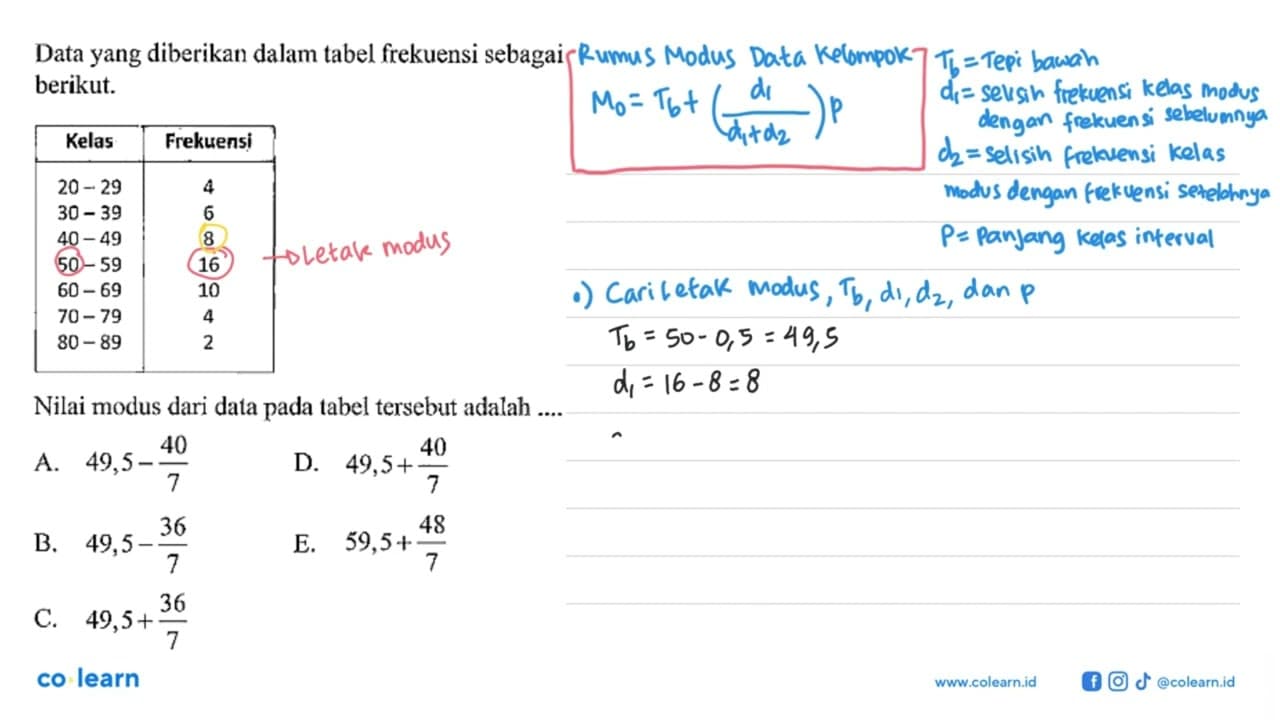 Data yang diberikan dalam tabel frekuensi sebagai
berikut.
Kelas Frekuensi
20 – 29 4
30 – 39 6
40 – 49 8
50 – 59 16
60 – 69 10
70 – 79 4
80 – 89 2
→ Letak modus
Nilai modus dari data pada tabel tersebut adalah ....
A. 49,5 – 40/7
D. 49,5 + 40/7
B. 49,5 – 36/7
E. 59,5 + 48/7
C. 49,5 + 36/7
Rumus Modus Data Kelompok
Mo = Tb + (d1/(d1 + d2)) p
Tb = Tepi bawah
d1 = selisih frekuensi kelas modus
dengan frekuensi sebelumnya
d2 = selisih frekuensi kelas
modus dengan frekuensi setelahnya
P = Panjang kelas interval
•) Cari letak modus, Tb, d1, d2, dan p
Tb = 50 - 0,5 = 49,5
d1 = 16 - 8 = 8
co learn
www.colearn.id
@colearn.id